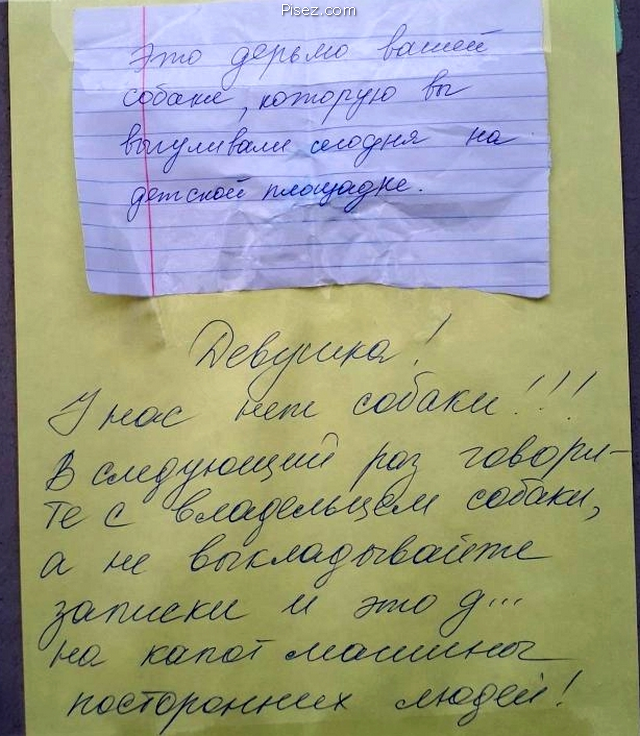 Pisez.com
Это дерьмо вашей
собаки, которую вы
выгуливали сегодня на
детской площадке.
Девушка!
У нас нет собаки!!!
В следующий раз говори-
те с владельцем собаки,
а не выкладывайте
записки и это д...
на капот машины
посторонних людей!